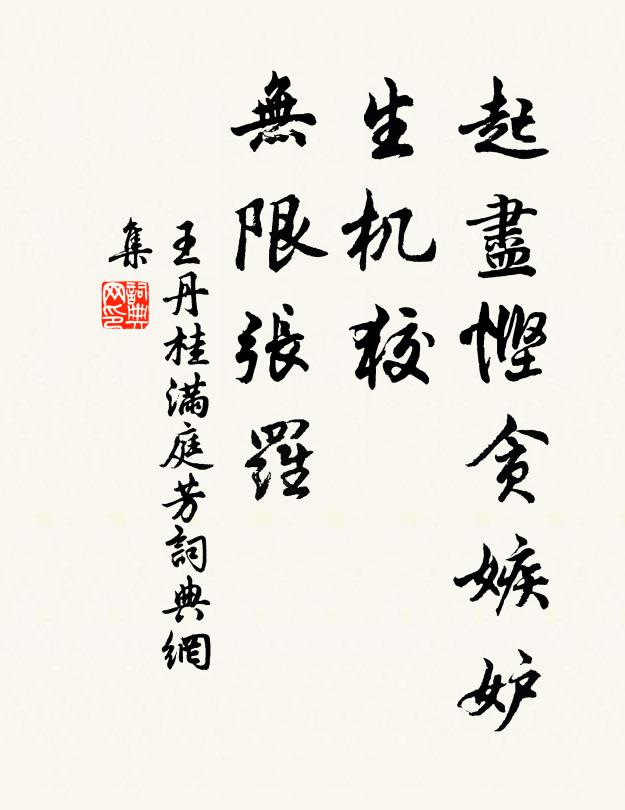 起盡慳貪嫉妒
生机狡
無限張羅
王丹桂滿庭芳詞典網
集
詞典
网印